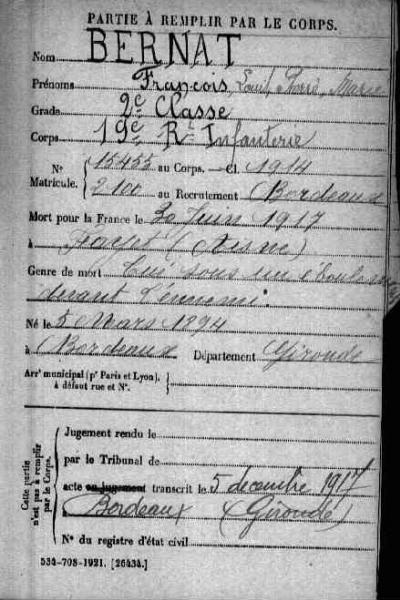 PARTIE À REMPLIR PAR LE CORPS.
Nom BERNAT
Prénoms François, Louis, Pierre, Marie
Grade 2e Classe
Corps 19e Rt Infanterie
No Matricule. { 15455 au Corps. — Cl 1914
2100 au Recrutement Bordeaux
Mort pour la France le 30 Juin 1917
à (Aisne)
Genre de mort Tué sous un éboulement
devant l'ennemi
Né le 5 Mars 1894
à Bordeaux Département Gironde
Arrt municipal (pr Paris et Lyon), à défaut rue et No.
Cette partie n'est pas à remplir par le Corps.
Jugement rendu le
par le Tribunal de
acte ou jugement transcrit le 5 décembre 1917
à Bordeaux (Gironde)
No du registre d'état civil
534-708-1921. [26434.]